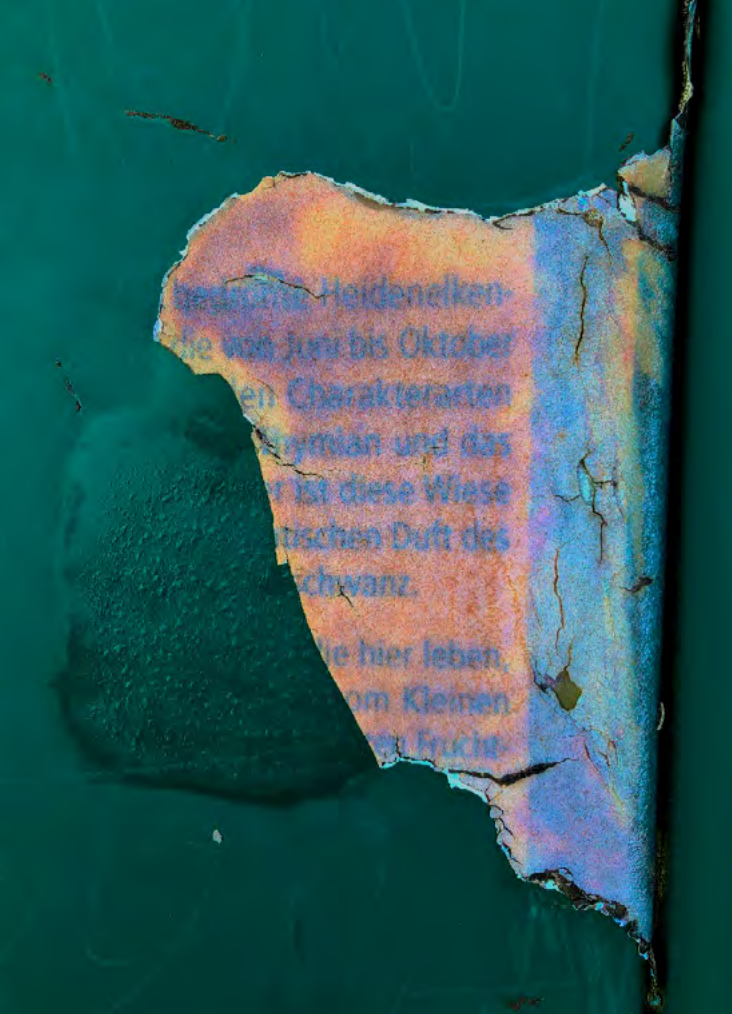 Heidenelken-
die von Juni bis Oktober
en Charakterarten
hymian und das
r ist diese Wiese
tischen Duft des
schwanz.
die hier leben,
om Kleinen
en Frucht-